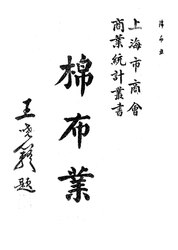 上海市商會
商業統計叢書
棉布業
王曉籟題